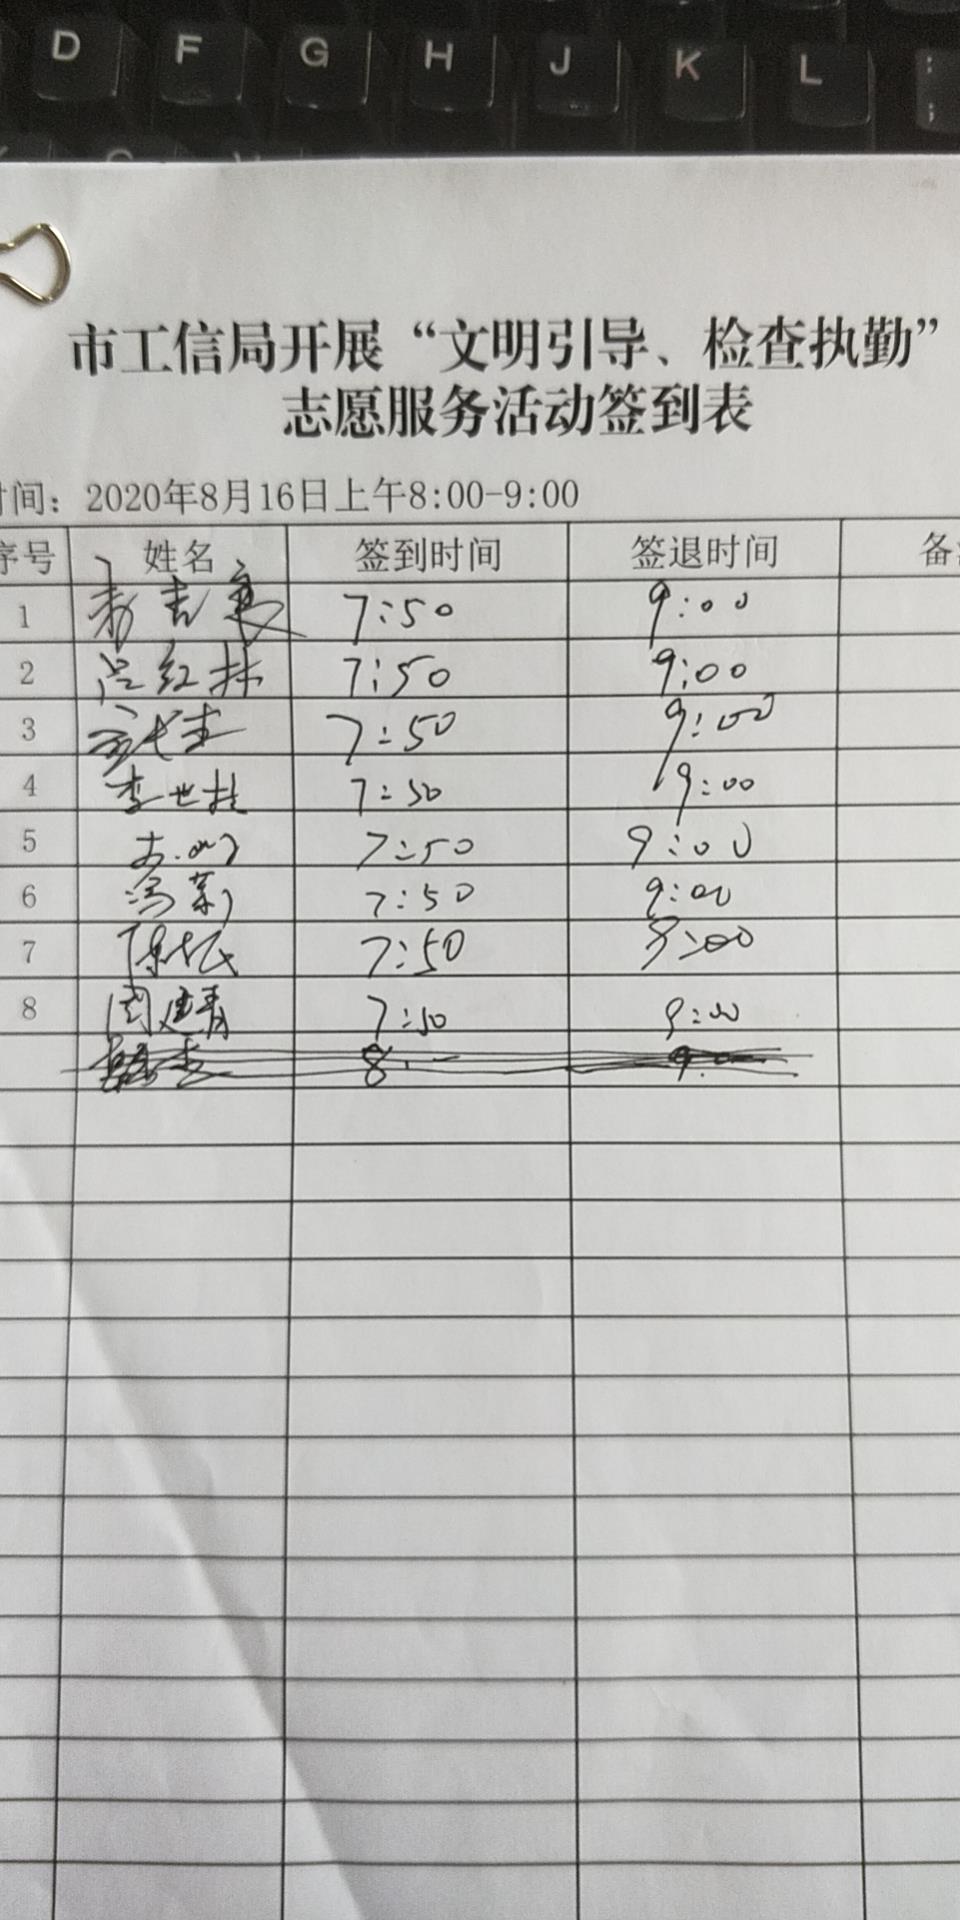 D F G H J K L ;
市工信局开展“文明引导、检查执勤”
志愿服务活动签到表
时间：2020年8月16日上午8:00-9:00
序号 姓名 签到时间 签退时间 备
1 7:50 9:00
2 吕红林 7:50 9:00
3 7:50 9:00
4 李世柱 7:50 9:00
5 7:50 9:00
6 冯莉 7:50 9:00
7 7:50 9:00
8 周建青 7:50 9:00